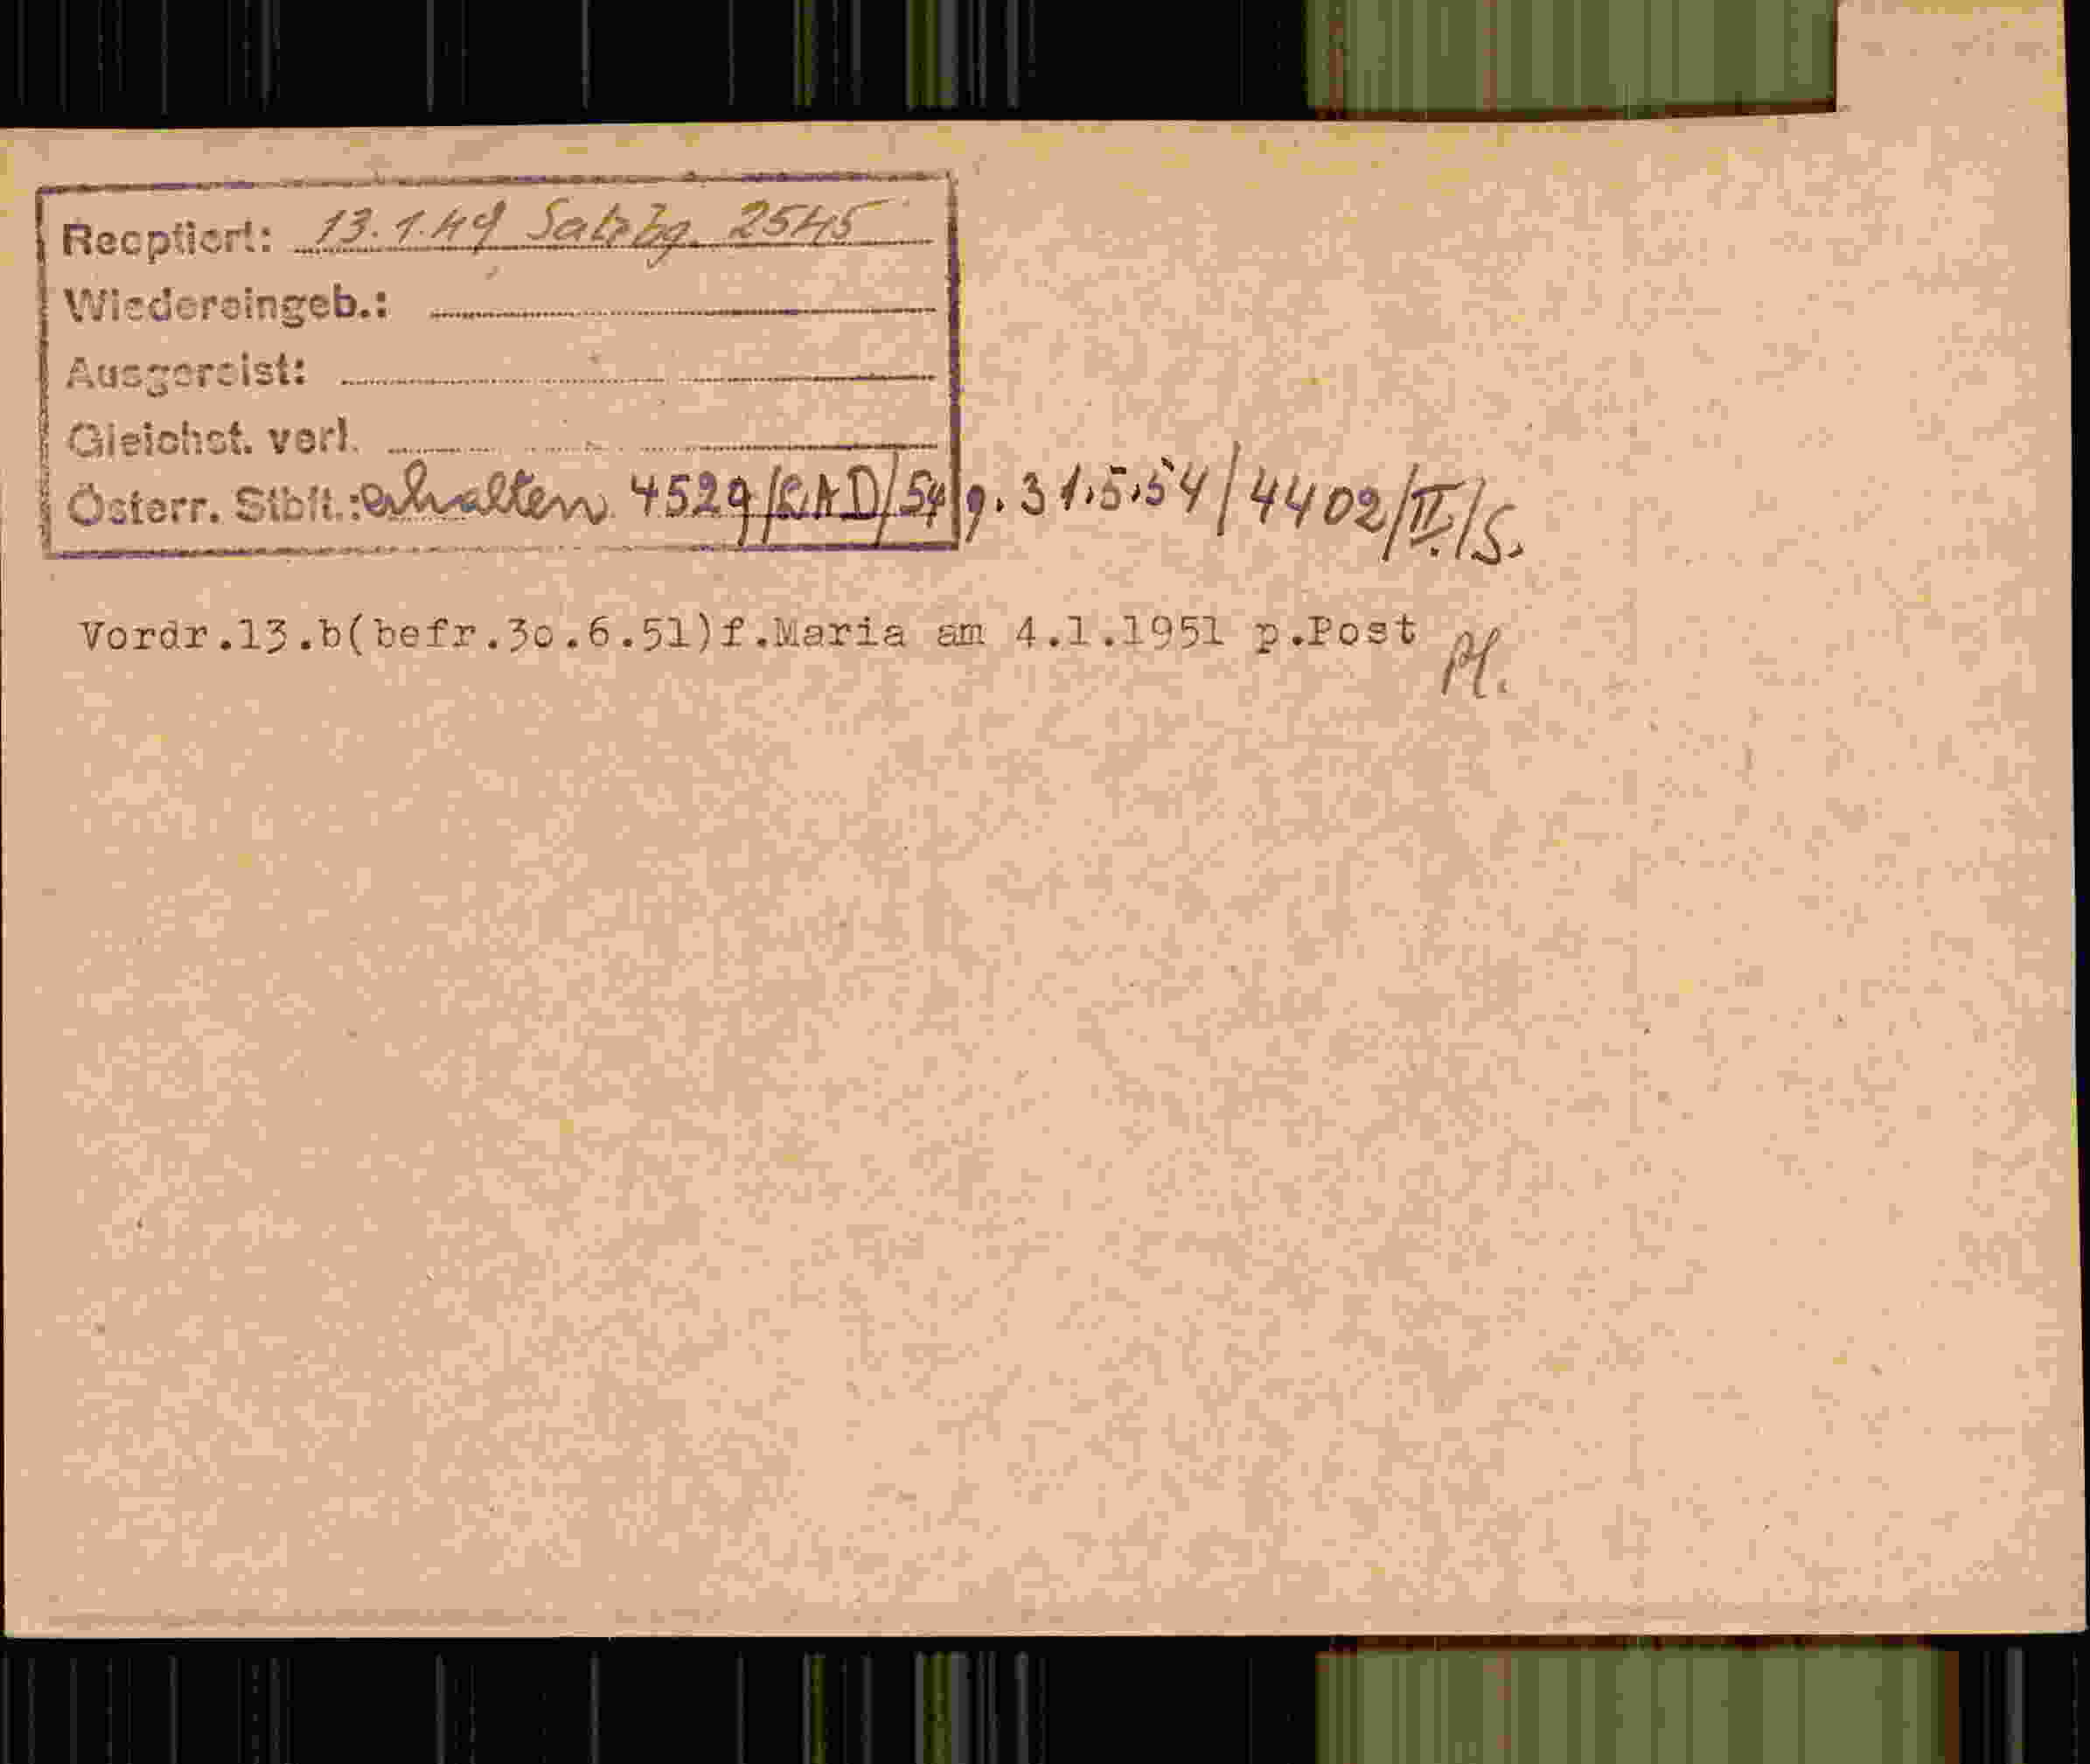 Recptiert: 13.1.49 Salzbg. 2545
Wiedereingeb.:
Ausgereist:
Gleichst. verl.
Österr. Stbft.: erhalten 4529/SAD/54 g. 31.5.54/4402/II./S.
Vordr.13.b(befr.3o.6.51)f.Maria am 4.1.1951 p.Post